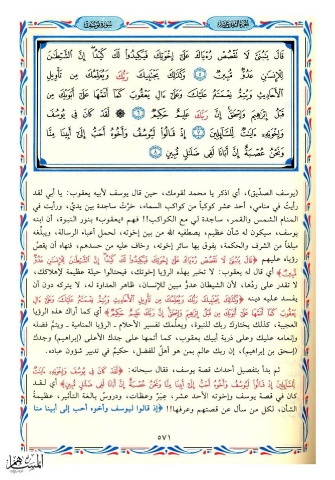 سورة يوسف
الجزء الثاني عشر
قَالَ يَبُنَىَّ لَا تَقْصُصْ رُءْيَاكَ عَلَىٰٓ إِخْوَتِكَ فَيَكِيدُوا۟ لَكَ كَيْدًا إِنَّ ٱلشَّيْطَـٰنَ
لِلْإِنسَـٰنِ عَدُوٌّ مُّبِينٌ ٥ وَكَذَٰلِكَ يَجْتَبِيكَ رَبُّكَ وَيُعَلِّمُكَ مِن تَأْوِيلِ
ٱلْأَحَادِيثِ وَيُتِمُّ نِعْمَتَهُۥ عَلَيْكَ وَعَلَىٰٓ ءَالِ يَعْقُوبَ كَمَآ أَتَمَّهَا عَلَىٰٓ أَبَوَيْكَ مِن
قَبْلُ إِبْرَٰهِيمَ وَإِسْحَـٰقَ إِنَّ رَبَّكَ عَلِيمٌ حَكِيمٌ ٦ لَّقَدْ كَانَ فِى يُوسُفَ
وَإِخْوَتِهِۦٓ ءَايَـٰتٌ لِّلسَّآئِلِينَ ٧ إِذْ قَالُوا۟ لَيُوسُفُ وَأَخُوهُ أَحَبُّ إِلَىٰٓ أَبِينَا مِنَّا
وَنَحْنُ عُصْبَةٌ إِنَّ أَبَانَا لَفِى ضَلَـٰلٍ مُّبِينٍ ٨
(يوسف الصدّيق)، أي اذكر يا محمد لقومك، حين قال يوسف لأبيه يعقوب: يا أبي لقد
رأيت في منامي، أحد عشر كوكباً من كواكب السماء، خرَّت ساجدة بين يديَّ، ورأيت في
المنام الشمس والقمر، ساجدة لي مع الكواكب!! فهم «يعقوب» بنور النبوة، أن ابنه
يوسف، سيكون له شأن عظيم، يصطفيه الله من بين إخوته، لحمل أعباء الرسالة، ويبلّغه
مبلغاً من الشرف والحكمة، يفوق بها سائر إخوته، وخاف عليه من حسدهم، فنهاه أن يقصَّ
رؤياه عليهم ﴿قَالَ يَبُنَىَّ لَا تَقْصُصْ رُءْيَاكَ عَلَىٰٓ إِخْوَتِكَ فَيَكِيدُوا۟ لَكَ كَيْدًا إِنَّ ٱلشَّيْطَـٰنَ لِلْإِنسَـٰنِ عَدُوٌّ
مُّبِينٌ﴾ أي قال له يعقوب: لا تخبر بهذه الرؤيا إخوتك، فيحتالوا حيلة عظيمة لإهلاكك،
لا تقدر على ردّها، لأن الشيطان عدوّ مبين للإنسان، ظاهر العداوة له، لا يتركه دون أن
يفسد عليه دينه ﴿وَكَذَٰلِكَ يَجْتَبِيكَ رَبُّكَ وَيُعَلِّمُكَ مِن تَأْوِيلِ ٱلْأَحَادِيثِ وَيُتِمُّ نِعْمَتَهُۥ عَلَيْكَ وَعَلَىٰٓ ءَالِ
يَعْقُوبَ كَمَآ أَتَمَّهَا عَلَىٰٓ أَبَوَيْكَ مِن قَبْلُ إِبْرَٰهِيمَ وَإِسْحَـٰقَ إِنَّ رَبَّكَ عَلِيمٌ حَكِيمٌ﴾ أي كما أراك هذه الرؤيا
العجيبة، كذلك يختارك ربك للنبوة، ويعلّمك تفسير الأحلام ـ الرؤيا المنامية ـ ويتمّ فضله
وإنعامه عليك وعلى ذرية أبيك يعقوب، كما أتمها على جدك الأعلى (إبراهيم) وجدك
(إسحق بن إبراهيم)، إن ربك عالم بمن هو أهلٌ للفضل، حكيمٌ في تدبير شؤون عباده.
ثم بدأ بتفصيل أحداث قصة يوسف، فقال سبحانه: ﴿لَّقَدْ كَانَ فِى يُوسُفَ وَإِخْوَتِهِۦٓ ءَايَـٰتٌ
لِّلسَّآئِلِينَ إِذْ قَالُوا۟ لَيُوسُفُ وَأَخُوهُ أَحَبُّ إِلَىٰٓ أَبِينَا مِنَّا وَنَحْنُ عُصْبَةٌ إِنَّ أَبَانَا لَفِى ضَلَـٰلٍ مُّبِينٍ﴾ أي لقد
كان في قصة يوسف وإخوته الأحد عشر، عِبَرٌ وعظات، ودروسٌ بالغة التأثير، عظيمةُ
الشأن، لكل من سأل عن قصتهم وعرفها!! ﴿إذ قالوا ليوسف وأخوه أحب إلى أبينا منا
٥٧١